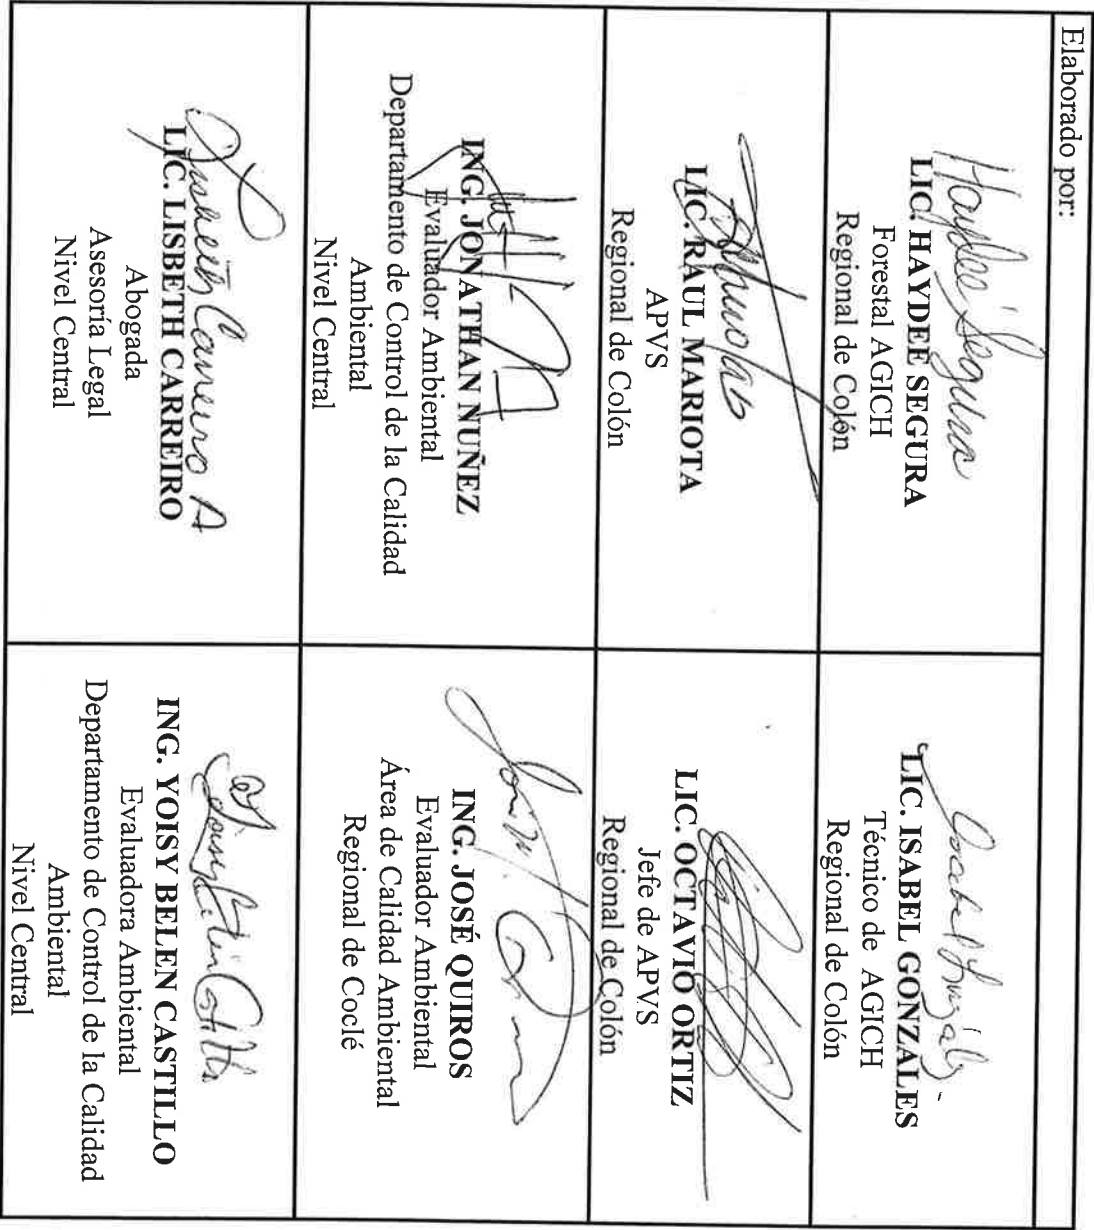 Elaborado por:
Haydeé Segura
LIC. HAYDEE SEGURA
Forestal AGICH
Regional de Colón
LIC. ISABEL GONZALES
Técnico de AGICH
Regional de Colón
LIC. RAUL MARIOTA
APVS
Regional de Colón
LIC. OCTAVIO ORTIZ
Jefe de APVS
Regional de Colón
ING. JONATHAN NUÑEZ
Evaluador Ambiental
Departamento de Control de la Calidad
Ambiental
Nivel Central
ING. JOSÉ QUIROS
Evaluador Ambiental
Área de Calidad Ambiental
Regional de Coclé
Lisbeth Carreiro A
LIC. LISBETH CARREIRO
Abogada
Asesoría Legal
Nivel Central
ING. YOISY BELEN CASTILLO
Evaluadora Ambiental
Departamento de Control de la Calidad
Ambiental
Nivel Central